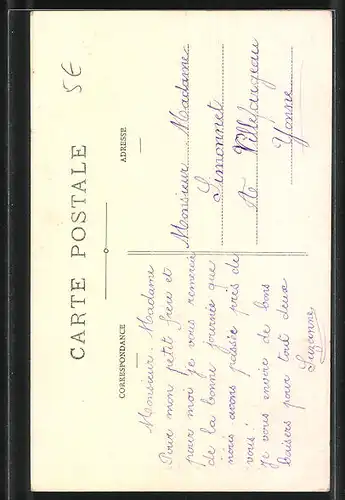 5€
CARTE POSTALE
CORRESPONDANCE
ADRESSE
Monsieur, Madame
Pour mon petit frère et
pour moi je vous remercie
de la bonne journée que
nous avons passée près de
vous!
Je vous envoie de bons
baisers pour tout deux
Suzanne
Monsieur Madame
Simonnet
à Villefargeau
Yonne